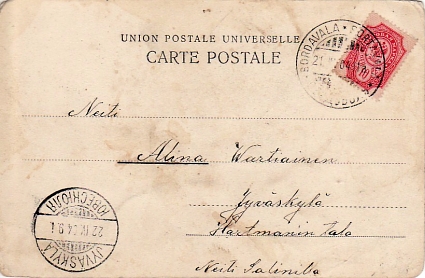 UNION POSTALE UNIVERSELLE
CARTE POSTALE
SORDAVALA
Neiti
Alina Wartiainen
Jyväskylä
Hartmanin talo
Neiti Salinilta
JYVÄSKYLÄ
22 IV 04 9 I